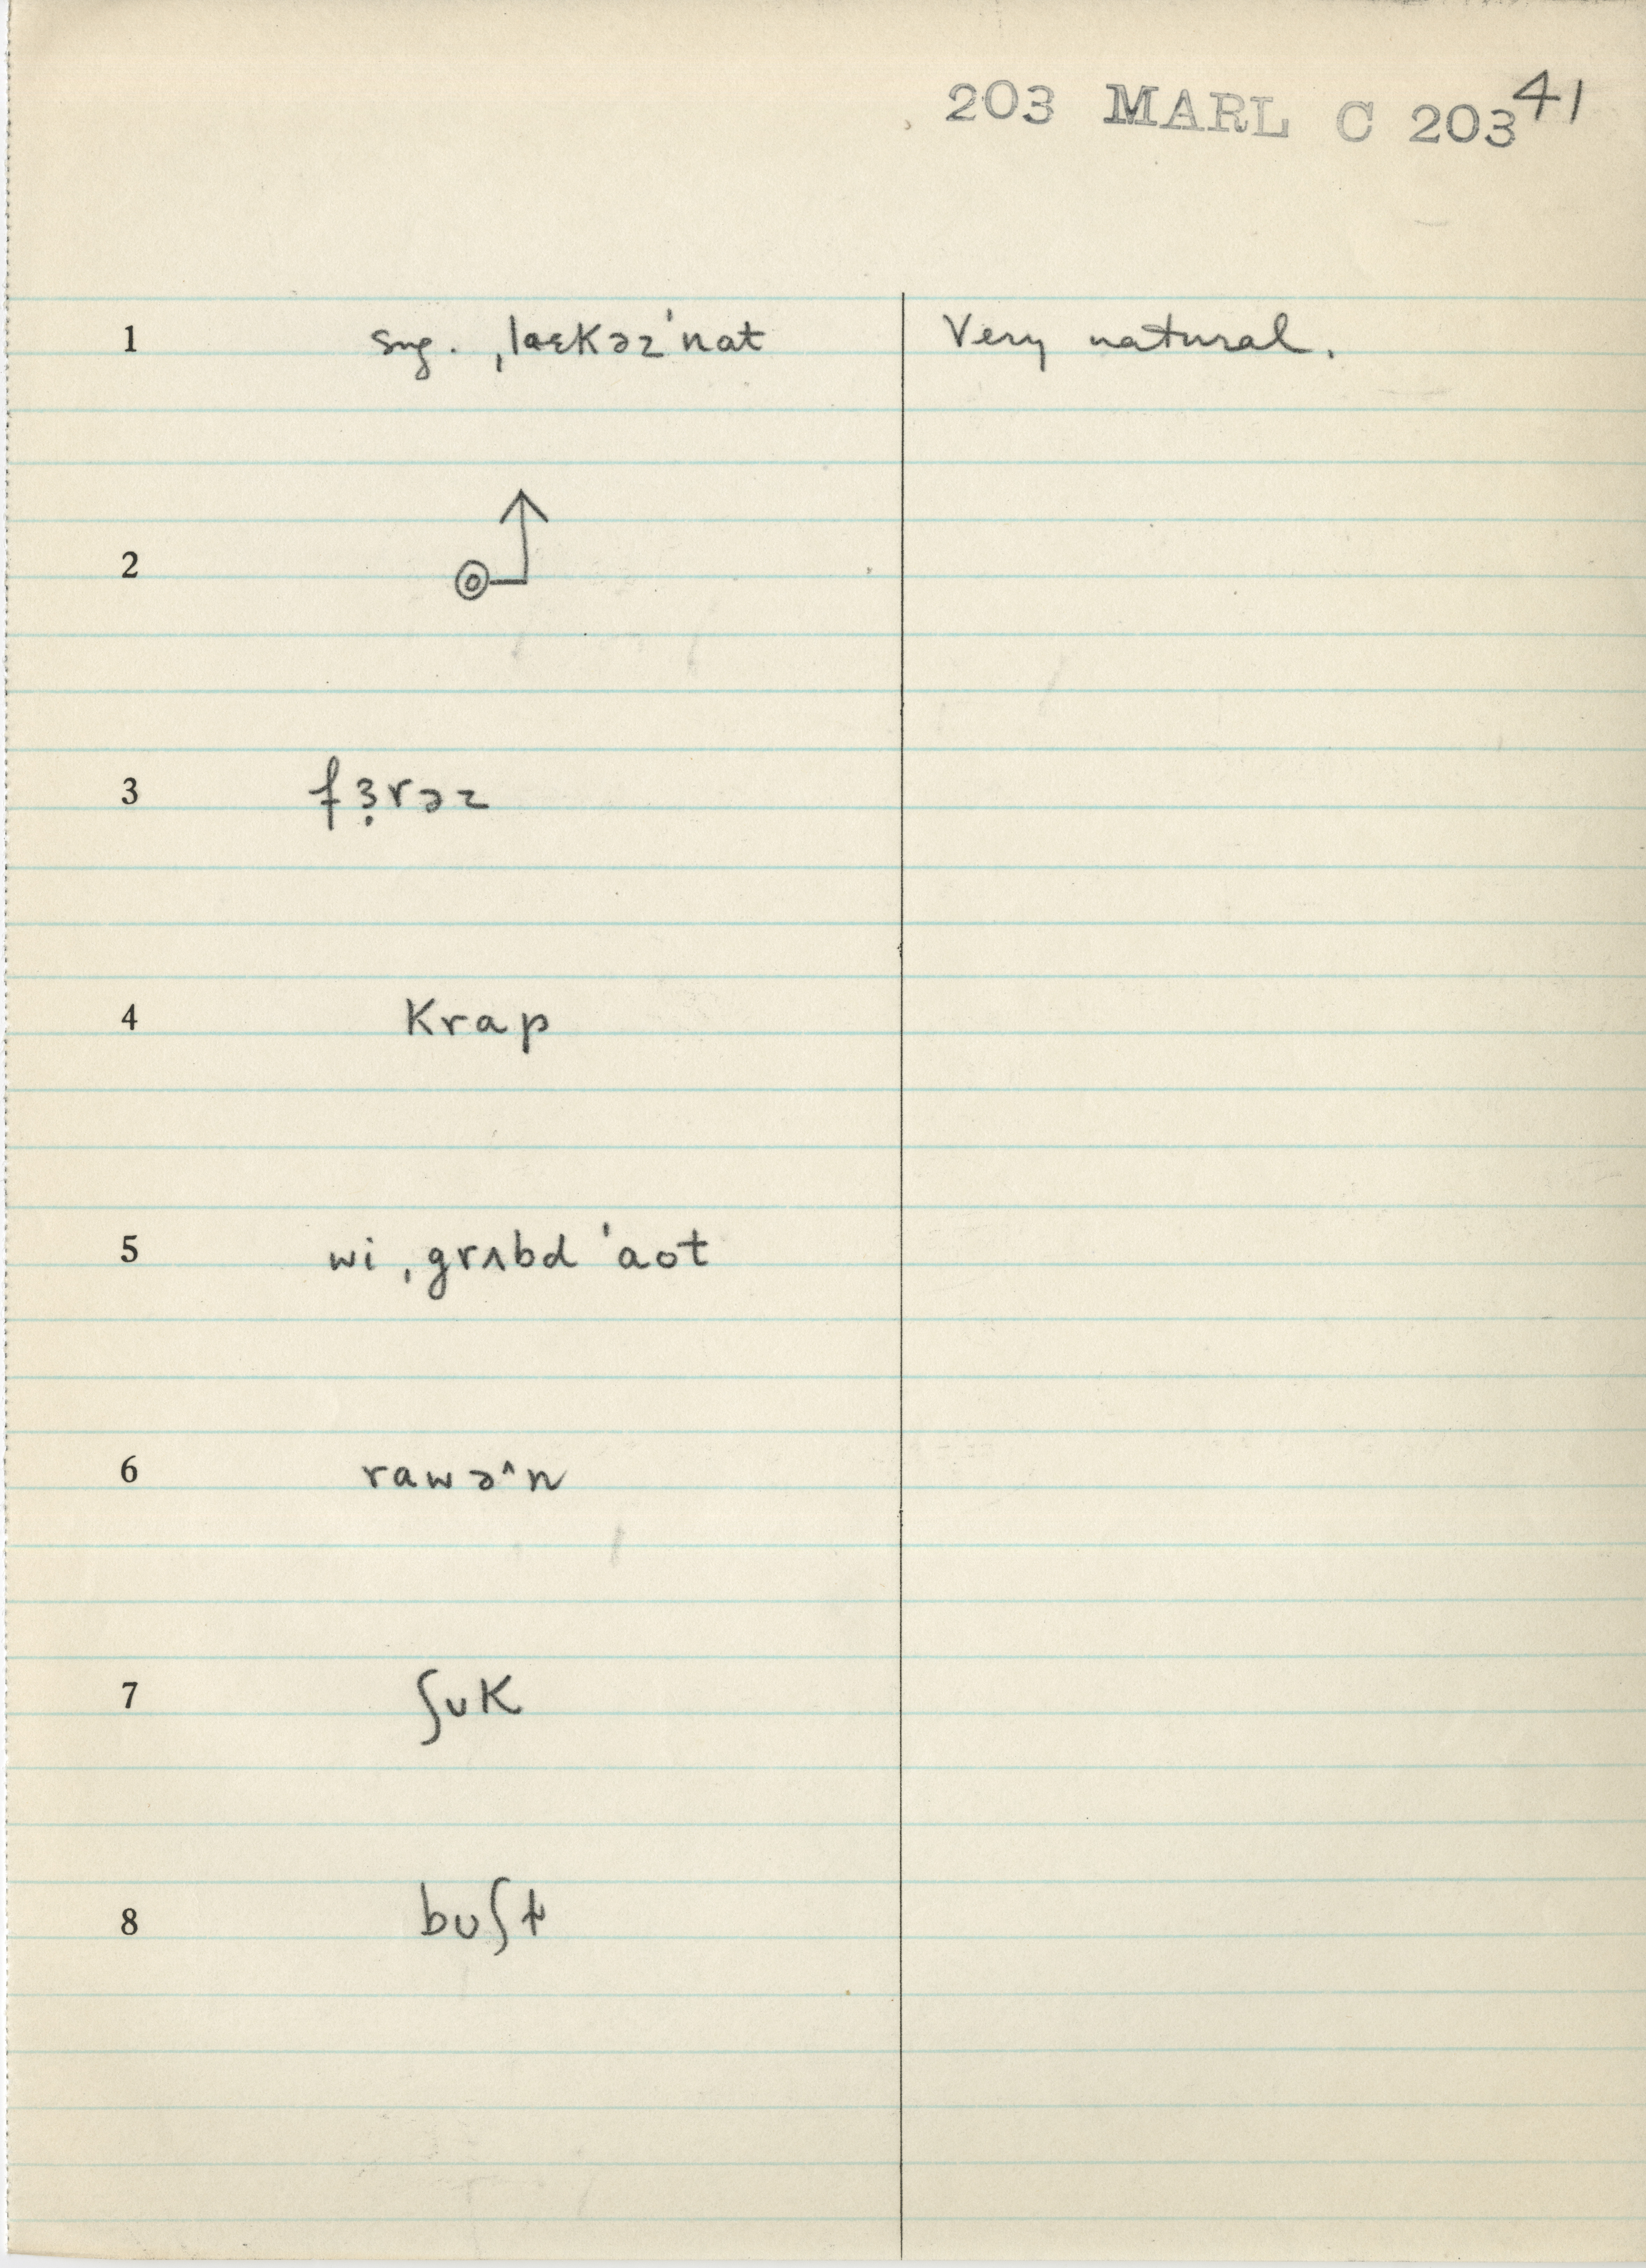 203 MARL C 203 41
1 sug. ˌlaɛkəz'nat Very natural.
2
3 fɜ̣rəz
4 krap
5 wi ˌgrʌbd 'aot
6 rawə^n
7 ʃʊk
8 bʊʃt